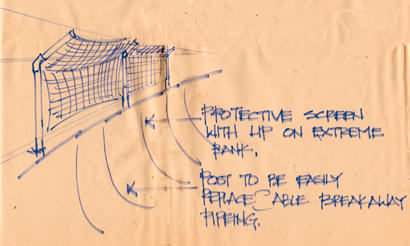 PROTECTIVE SCREEN
WITH LIP ON EXTREME
BANK.
POST TO BE EASILY
REPLACEABLE BREAKAWAY
PIPEING.